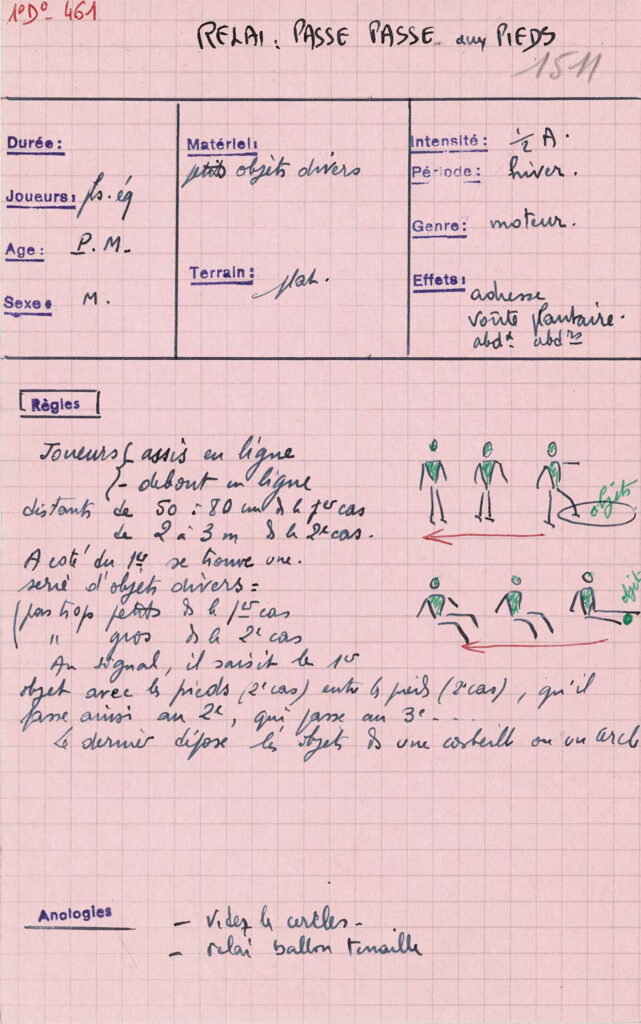 1°D° 461
RELAI : PASSE PASSE aux PIEDS
1511
Durée :
Joueurs : pls. éq
Age : P. M.
Sexe : M.
Matériel :
petits objets divers
Terrain : plat.
Intensité : 1/2 A.
Période : hiver.
Genre : moteur.
Effets : adresse
voûte plantaire.
abd^x abd^rs
Règles
Joueurs { assis en ligne
- debout en ligne
distants de 50 à 80 cm ds le 1er cas
de 2 à 3 m ds le 2e cas.
A coté du 1er se trouve une
serie d'objets divers :
( pas trop petits ds le 1er cas
" gros ds le 2e cas
Au signal, il saisit le 1er
objet avec les pieds (2e cas) entre les pieds (2e cas), qu'il
passe ainsi au 2e, qui passe au 3e ....
Le dernier dépose les objets ds une corbeille ou un cercle
objets
objets
Analogies
- videz les cercles -
- relai ballon tenaille